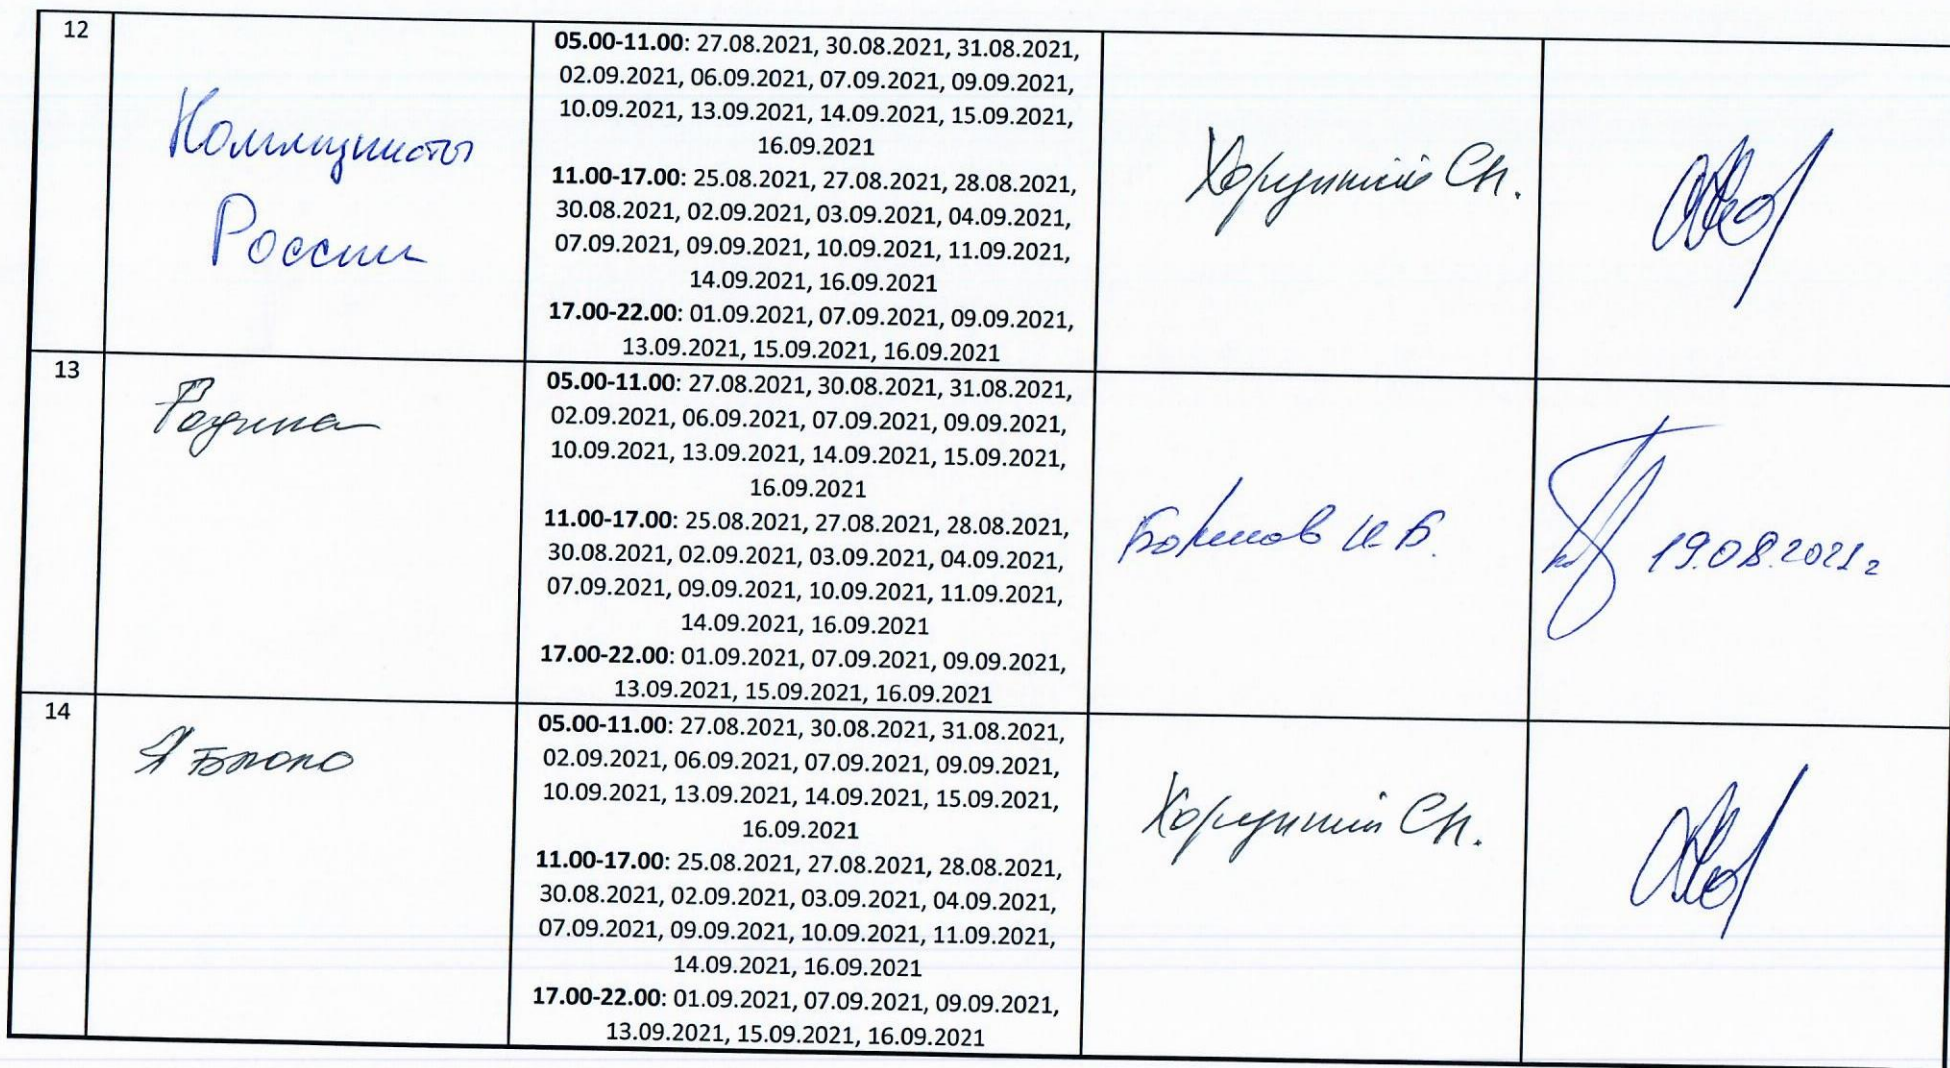 12
Коммунисты
России
05.00-11.00: 27.08.2021, 30.08.2021, 31.08.2021,
02.09.2021, 06.09.2021, 07.09.2021, 09.09.2021,
10.09.2021, 13.09.2021, 14.09.2021, 15.09.2021,
16.09.2021
11.00-17.00: 25.08.2021, 27.08.2021, 28.08.2021,
30.08.2021, 02.09.2021, 03.09.2021, 04.09.2021,
07.09.2021, 09.09.2021, 10.09.2021, 11.09.2021,
14.09.2021, 16.09.2021
17.00-22.00: 01.09.2021, 07.09.2021, 09.09.2021,
13.09.2021, 15.09.2021, 16.09.2021
13
Родина
05.00-11.00: 27.08.2021, 30.08.2021, 31.08.2021,
02.09.2021, 06.09.2021, 07.09.2021, 09.09.2021,
10.09.2021, 13.09.2021, 14.09.2021, 15.09.2021,
16.09.2021
11.00-17.00: 25.08.2021, 27.08.2021, 28.08.2021,
30.08.2021, 02.09.2021, 03.09.2021, 04.09.2021,
07.09.2021, 09.09.2021, 10.09.2021, 11.09.2021,
14.09.2021, 16.09.2021
17.00-22.00: 01.09.2021, 07.09.2021, 09.09.2021,
13.09.2021, 15.09.2021, 16.09.2021
19.08.2021г
14
Яблоко
05.00-11.00: 27.08.2021, 30.08.2021, 31.08.2021,
02.09.2021, 06.09.2021, 07.09.2021, 09.09.2021,
10.09.2021, 13.09.2021, 14.09.2021, 15.09.2021,
16.09.2021
11.00-17.00: 25.08.2021, 27.08.2021, 28.08.2021,
30.08.2021, 02.09.2021, 03.09.2021, 04.09.2021,
07.09.2021, 09.09.2021, 10.09.2021, 11.09.2021,
14.09.2021, 16.09.2021
17.00-22.00: 01.09.2021, 07.09.2021, 09.09.2021,
13.09.2021, 15.09.2021, 16.09.2021